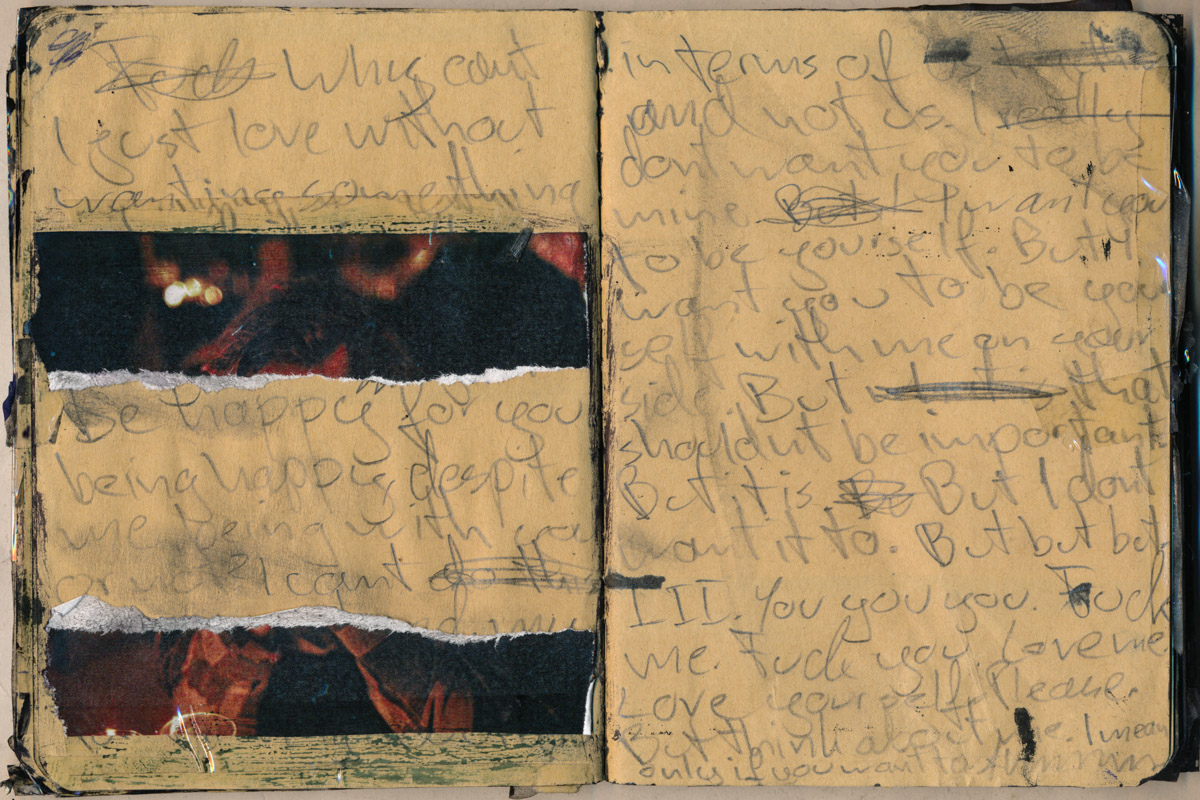 Fuck Why cant
I just love without
wanting something
Be happy for you
being happy despite
me being with you
or not? I cant
in terms of us
and not us. I really
dont want you to be
mine. But I want you
to be yourself. But I
want you to be your
self with me on your
side. But that
shouldnt be important.
But it is But I dont
want it to. But but but
I I I. You you you. Fuck
me. Fuck you Love me
Love yourself. Please.
But think about me. I mean
only if you want to